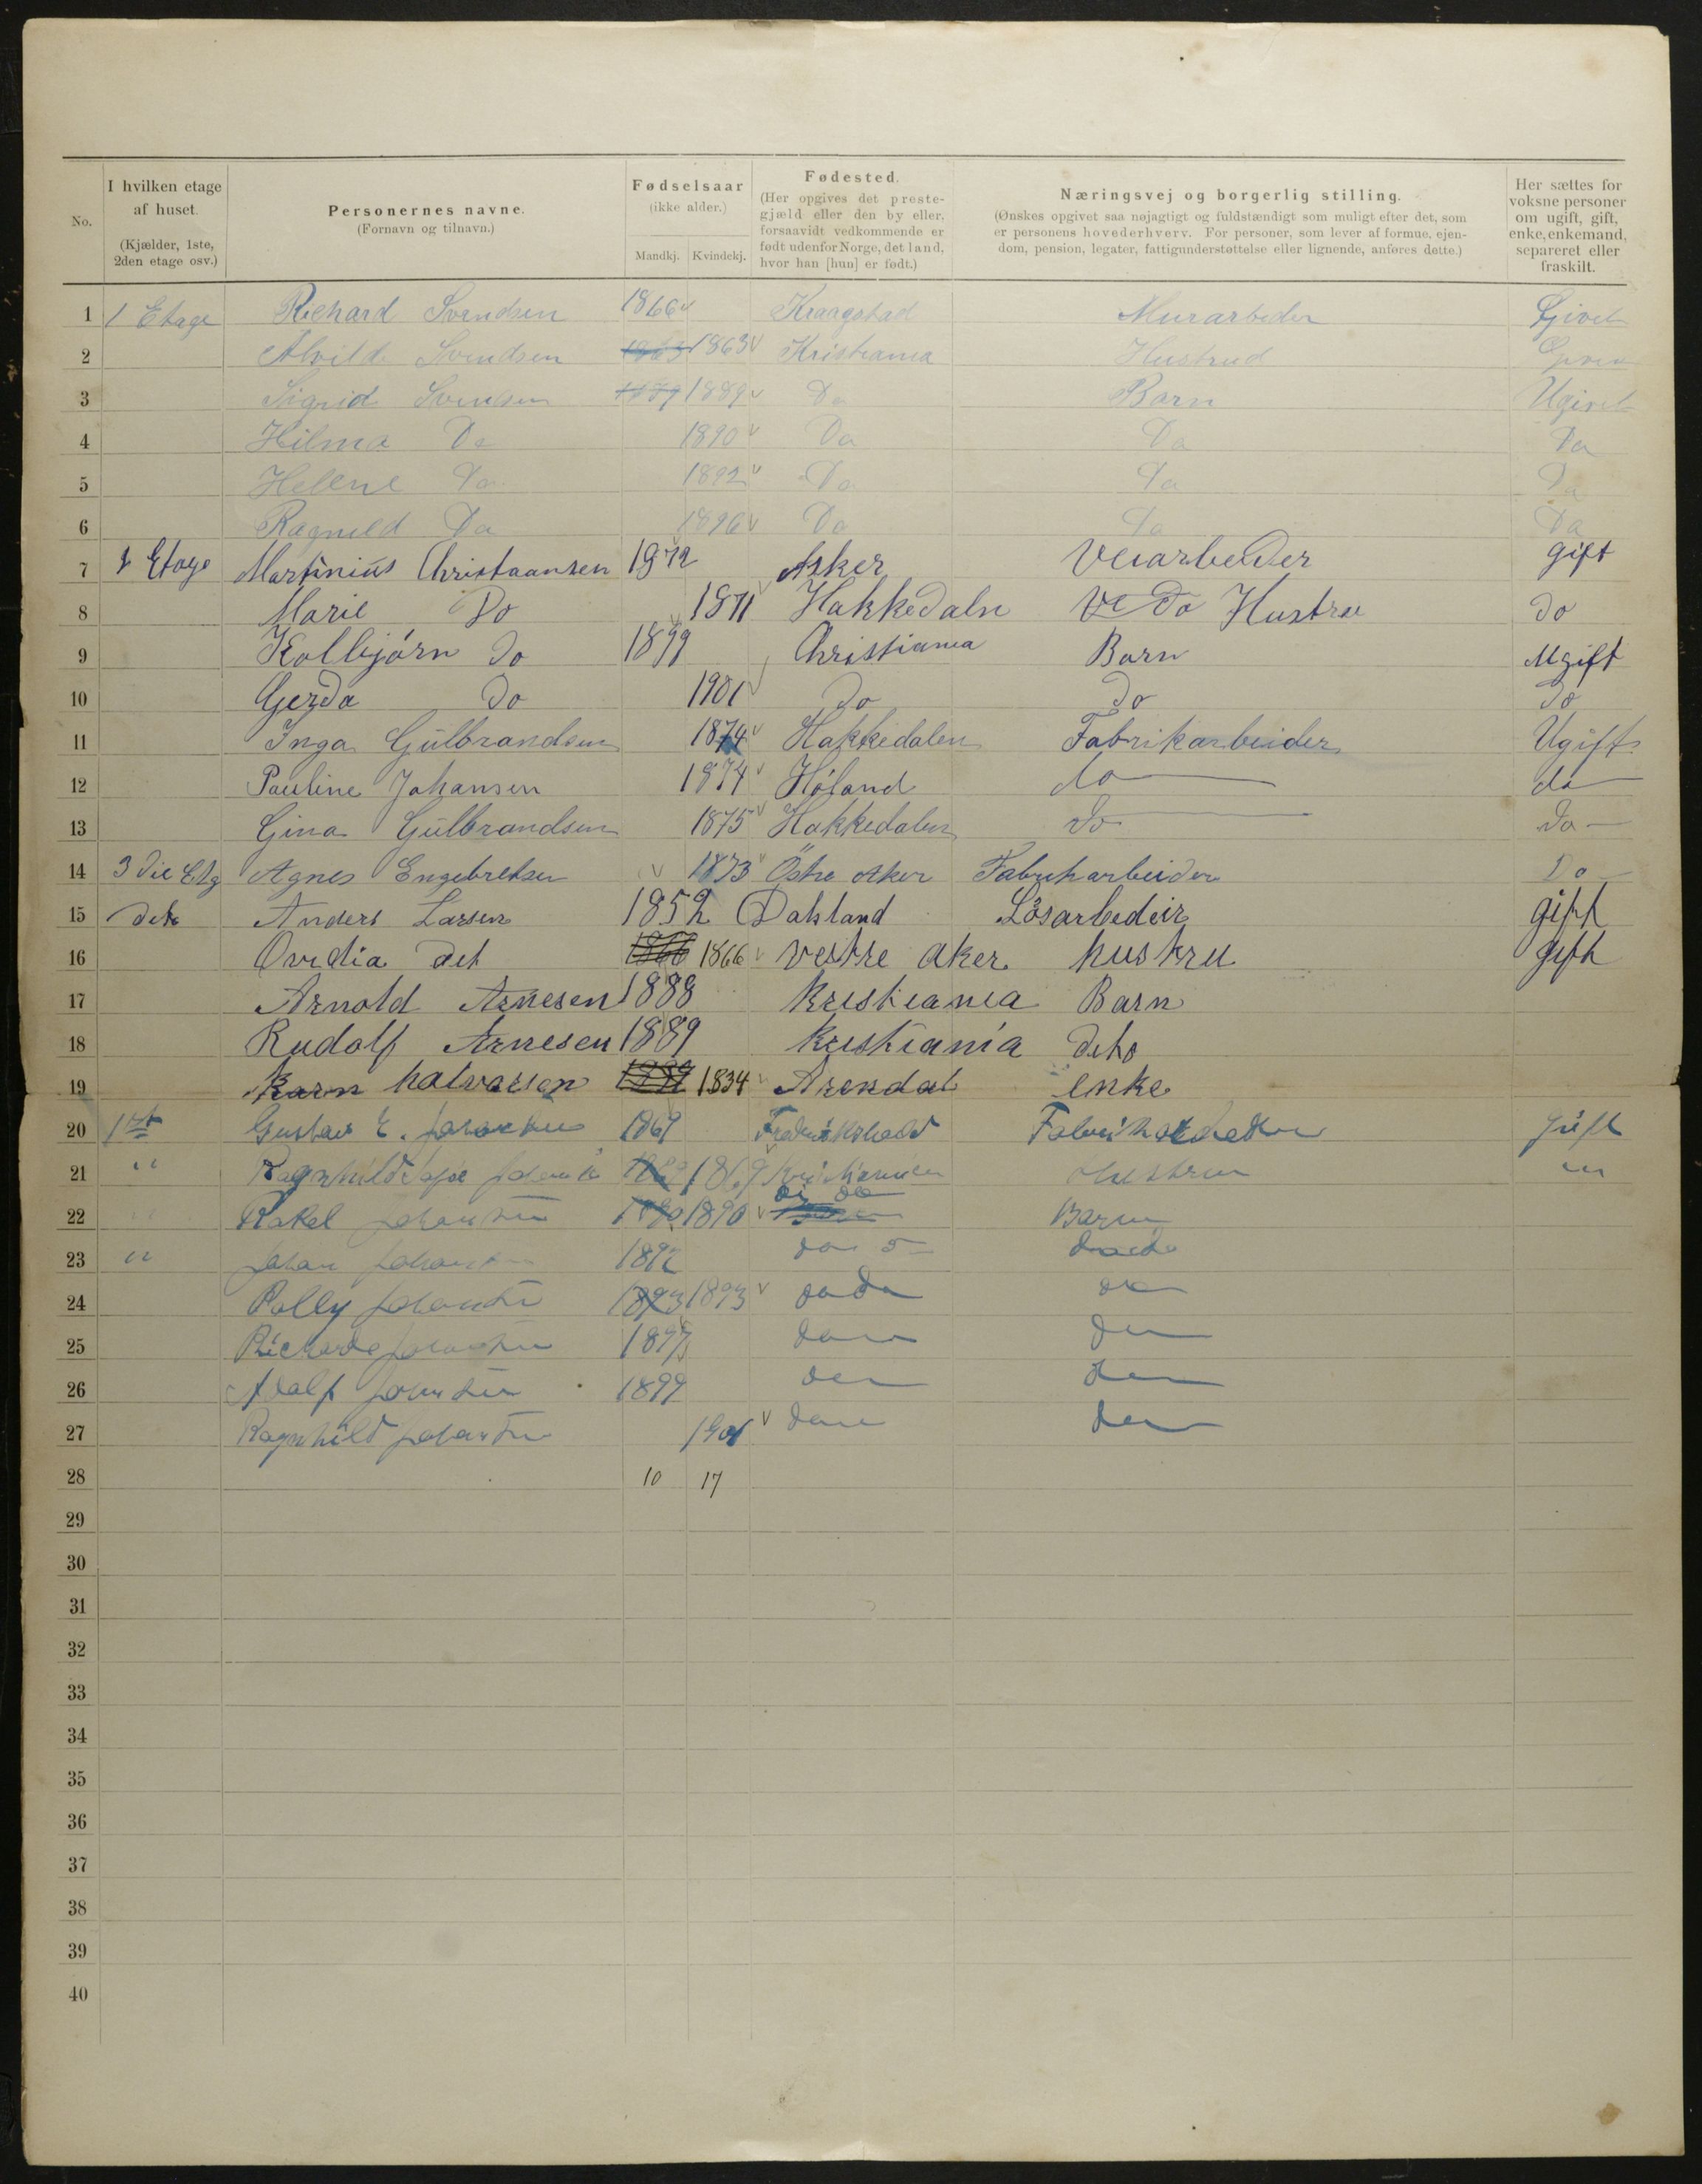 No.
I hvilken etage af huset. (Kjælder, 1ste, 2den etage osv.)
Personernes navne. (Fornavn og tilnavn.)
Fødselsaar (ikke alder.) Mandkj. Kvindekj.
Fødested. (Her opgives det prestegjæld eller den by eller, forsaavidt vedkommende er født udenfor Norge, det land, hvor han [hun] er født.)
Næringsvej og borgerlig stilling. (Ønskes opgivet saa nøjagtigt og fuldstændigt som muligt efter det, som er personens hovederhverv. For personer, som lever af formue, ejendom, pension, legater, fattigunderstøttelse eller lignende, anføres dette.)
Her sættes for voksne personer om ugift, gift, enke, enkemand, separeret eller fraskilt.
1 1 Etage Richard Svendsen 1866 Kraagstad Murarbeder Givet
2 Alvilde Svendsen 1863 1863 Kristiania Hustrud
3 Sigrid Svendsen 1889 1889 Da Barn Ugivet
4 Hilma Da 1890 Da Da Da
5 Helene Da 1892 Da Da Da
6 Ragnild Da 1896 Da Da Da
7 1 Etage Martinius Christaansen 1872 Asker Veiarbeider gift
8 Marie Do 1871 Hakkedaln Ve Do Hustru do
9 Kolbjörn Do 1899 Christiania Barn Ugift
10 Gerda Do 1901 Do Do Do
11 Inga Gülbrandsen 1874 Hakkedalen Fabrikarbeider Ugift
12 Pauline Johansen 1874 Höland do do
13 Gina Gülbrandsen 1875 Hakkedalen do do
14 3die Etg Agnes Engebretsen 1873 Östre Aker Fabrikarbeider Do
15 deto Anders Larsen 1852 Dalsland Lösarbedeir gift
16 Ovidia det 1866 1866 vestre Aker hustru gift
17 Arnold Arnesen 1888 kristiania Barn
18 Rudolf Arnesen 1889 kristiania deto
19 Karn halvorsen 1834 Arendal enke
20 1st Gustav E. Johansen 1869 Fredrikshald Fabrikarbeder gift
21 " 1869 Kristiania Hustru "
22 " Rakel Johansen 1890 1890 do do Barn
23 " Johan Johansen 1892 do
24 Polly Johansen 1893 1893 do do do
25 Johansen
26 Adolf Johansen 1899
27 Ragnhild Johansen 1901
28 10 17
29
30
31
32
33
34
35
36
37
38
39
40